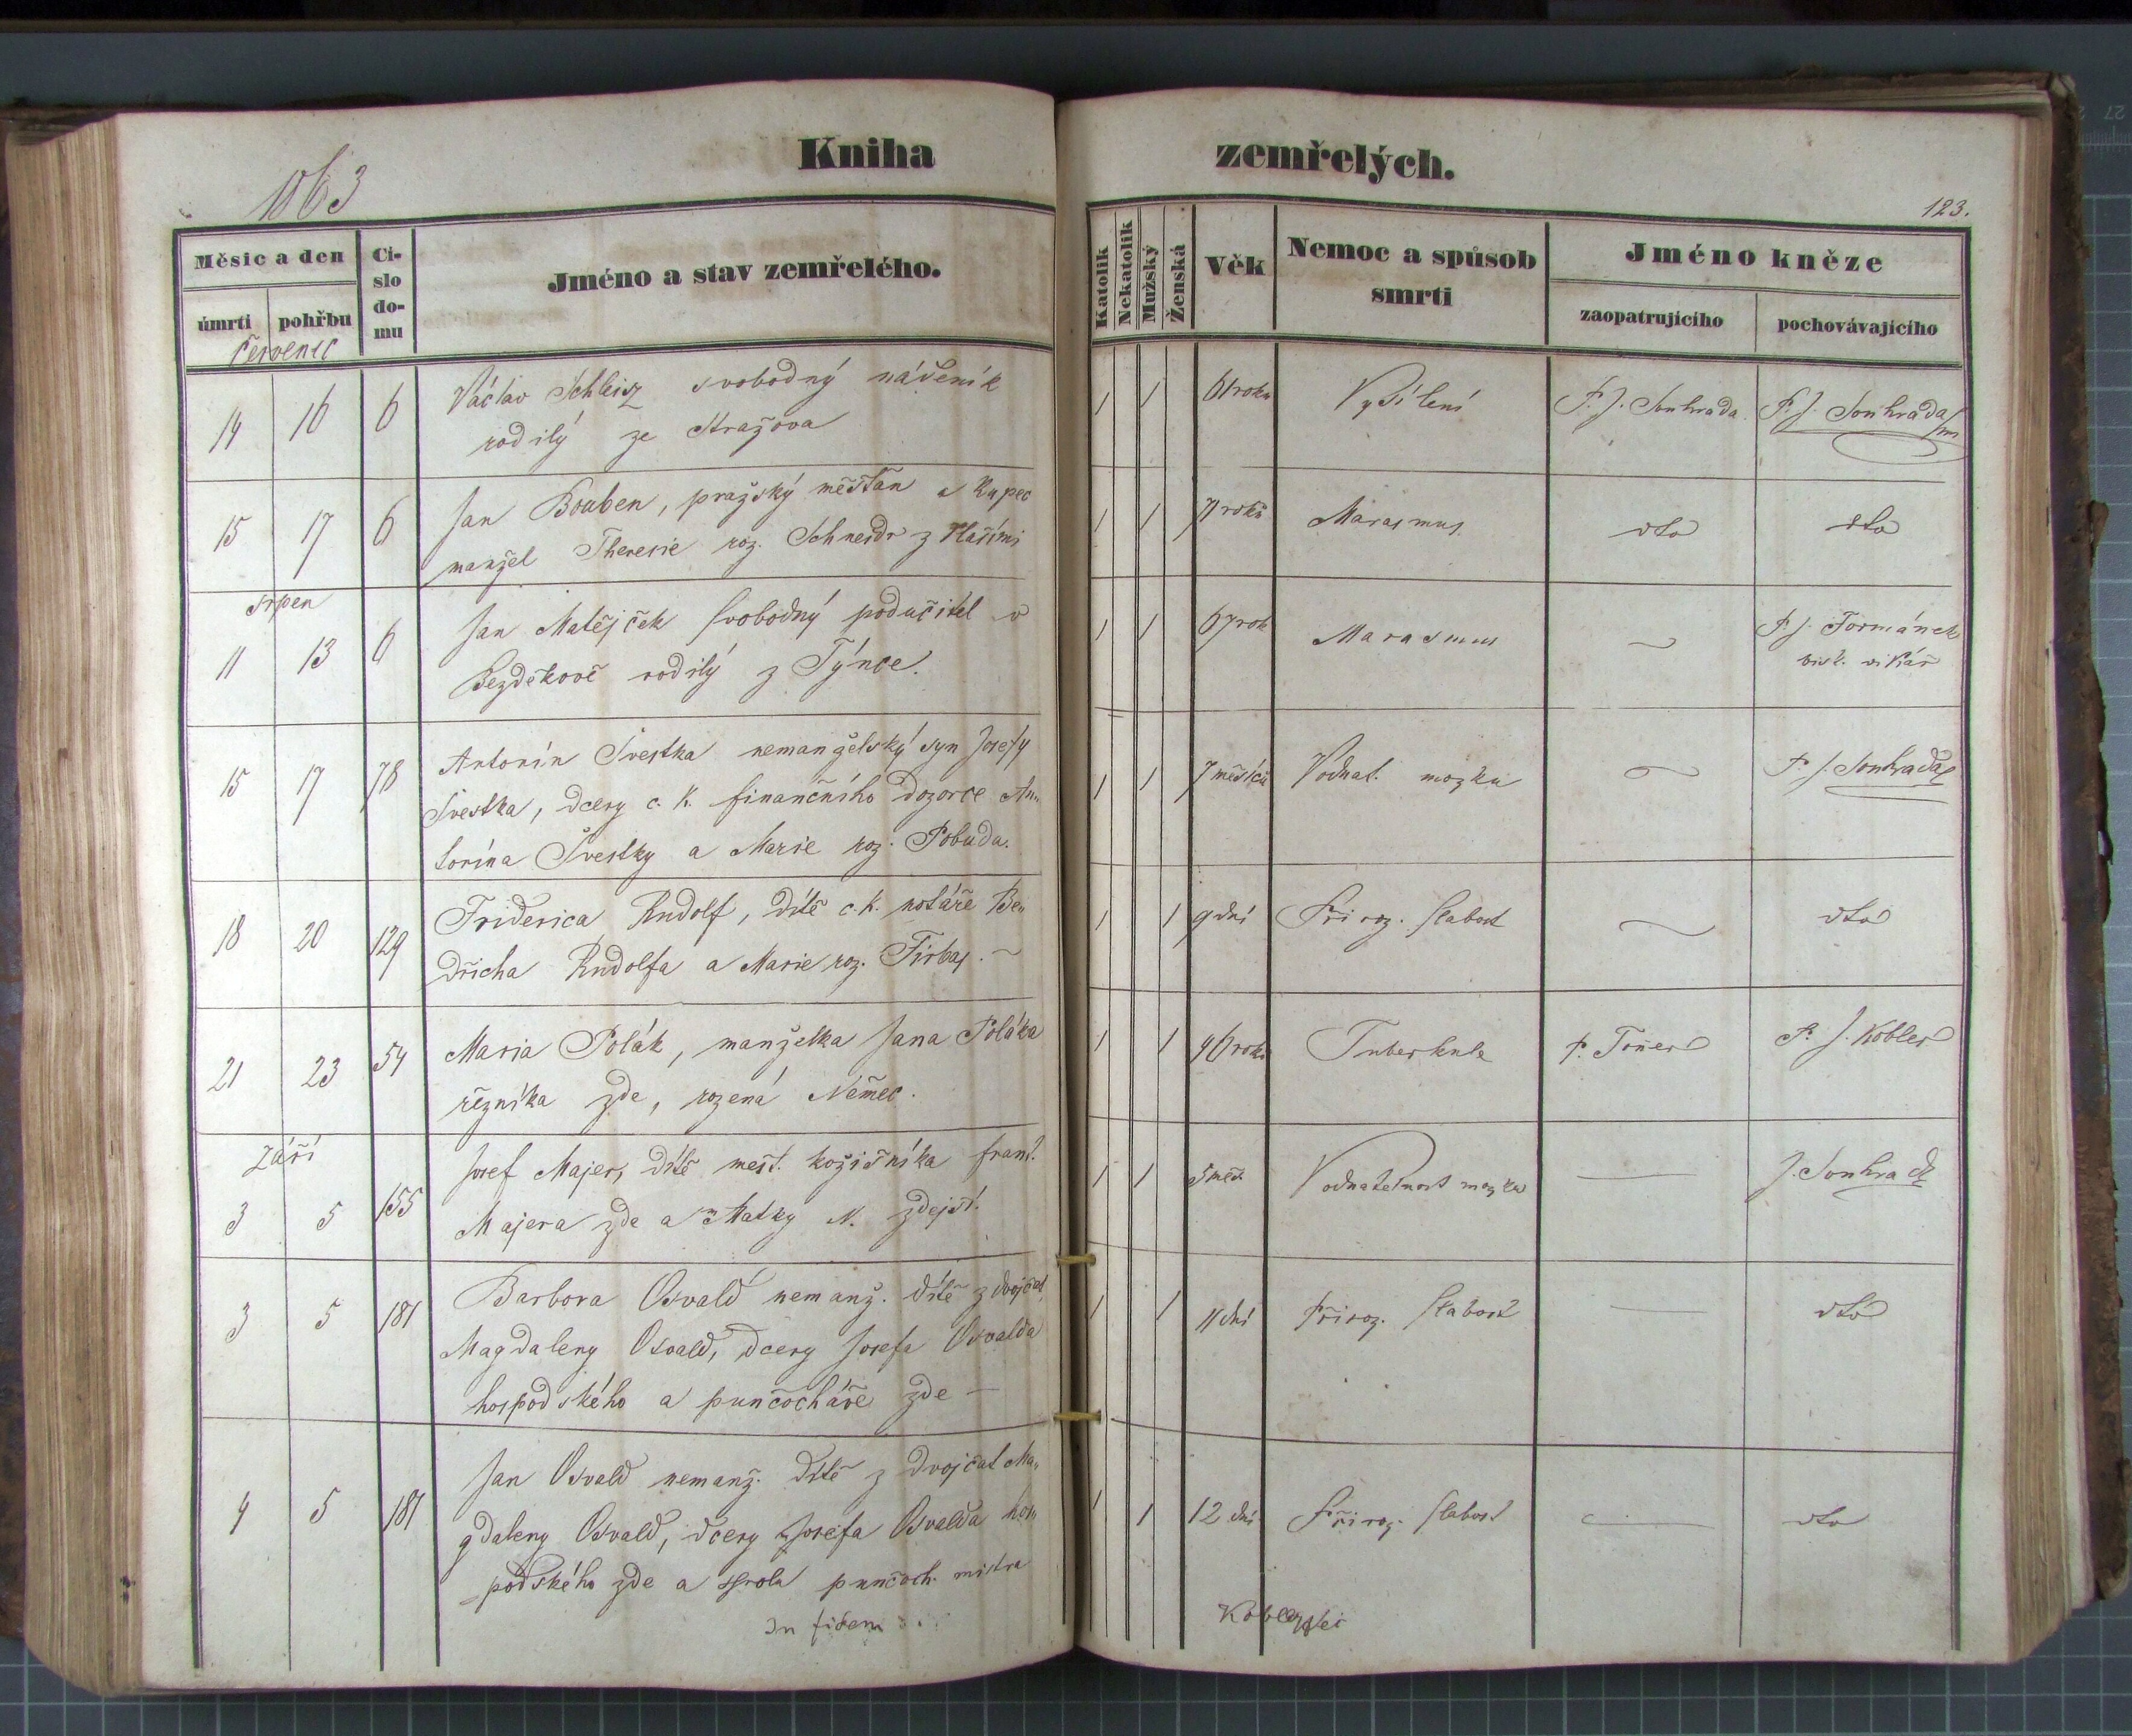 Kniha zemřelých.
1863
123.
Měsíc a den
úmrtí pohřbu
Číslo domu
Jméno a stav zemřelého.
Katolík
Nekatolík
Mužský
Ženská
Věk
Nemoc a spůsob smrti
Jméno kněze
zaopatrujícího pochovávajícího
červenec
14 16 6 Václav Schleisz svobodný nádeník 1 1 61 roku Vysílení P. J. Souhrada P. J. Souhrada
rodilý ze Stražova
15 17 6 Jan Bouben, pražský měšťan a kupec 1 1 71 roků Marasmus dto dto
manžel Theresie roz. Schneidr z
srpen
11 13 6 Jan Matějček svobodný podučitel v 1 1 67 rok Marasmus P. J. Formánek
Bezděkově rodilý z Týnce. bisk. vikář
15 17 78 Antonín Švestka nemanželský syn Josefy 1 1 7 měsíců Vodnat. mozku P. J. Souhrada
Švestka, dcery c. k. finančního dozorce An„
tonína Švestky a Marie roz. Pobuda.
18 20 129 Friderica Rudolf, dítě c. k. notáře Be„ 1 1 9 dní Přiroz. slabost dto
dřicha Rudolfa a Marie roz. Firbas.
21 23 54 Maria Polák, manželka Jana Poláka 1 1 46 roků Tuberkule P. J. Kobler
řezníka zde, rozená Němec.
Září
3 5 155 Josef Majer, dítě mešt. kožišníka Frant. 1 1 5 měs. Vodnatelnost mozku J. Souhrada
Majera zde a Matky N. zdejší.
3 5 181 Barbora Osvald nemanž. dítě z dvojčat 1 1 11 dní Přiroz. slabost dto
Magdaleny Osvald, dcery Josefa Osvalda
hospodského a punčocháře zde —
4 5 181 Jan Osvald nemanž. dítě z dvojčat Ma„ 1 1 12 dní Přiroz. slabost dto
gdaleny Osvald, dcery Josefa Osvalda hos„
podského zde a punčoch. mistra
In fidem